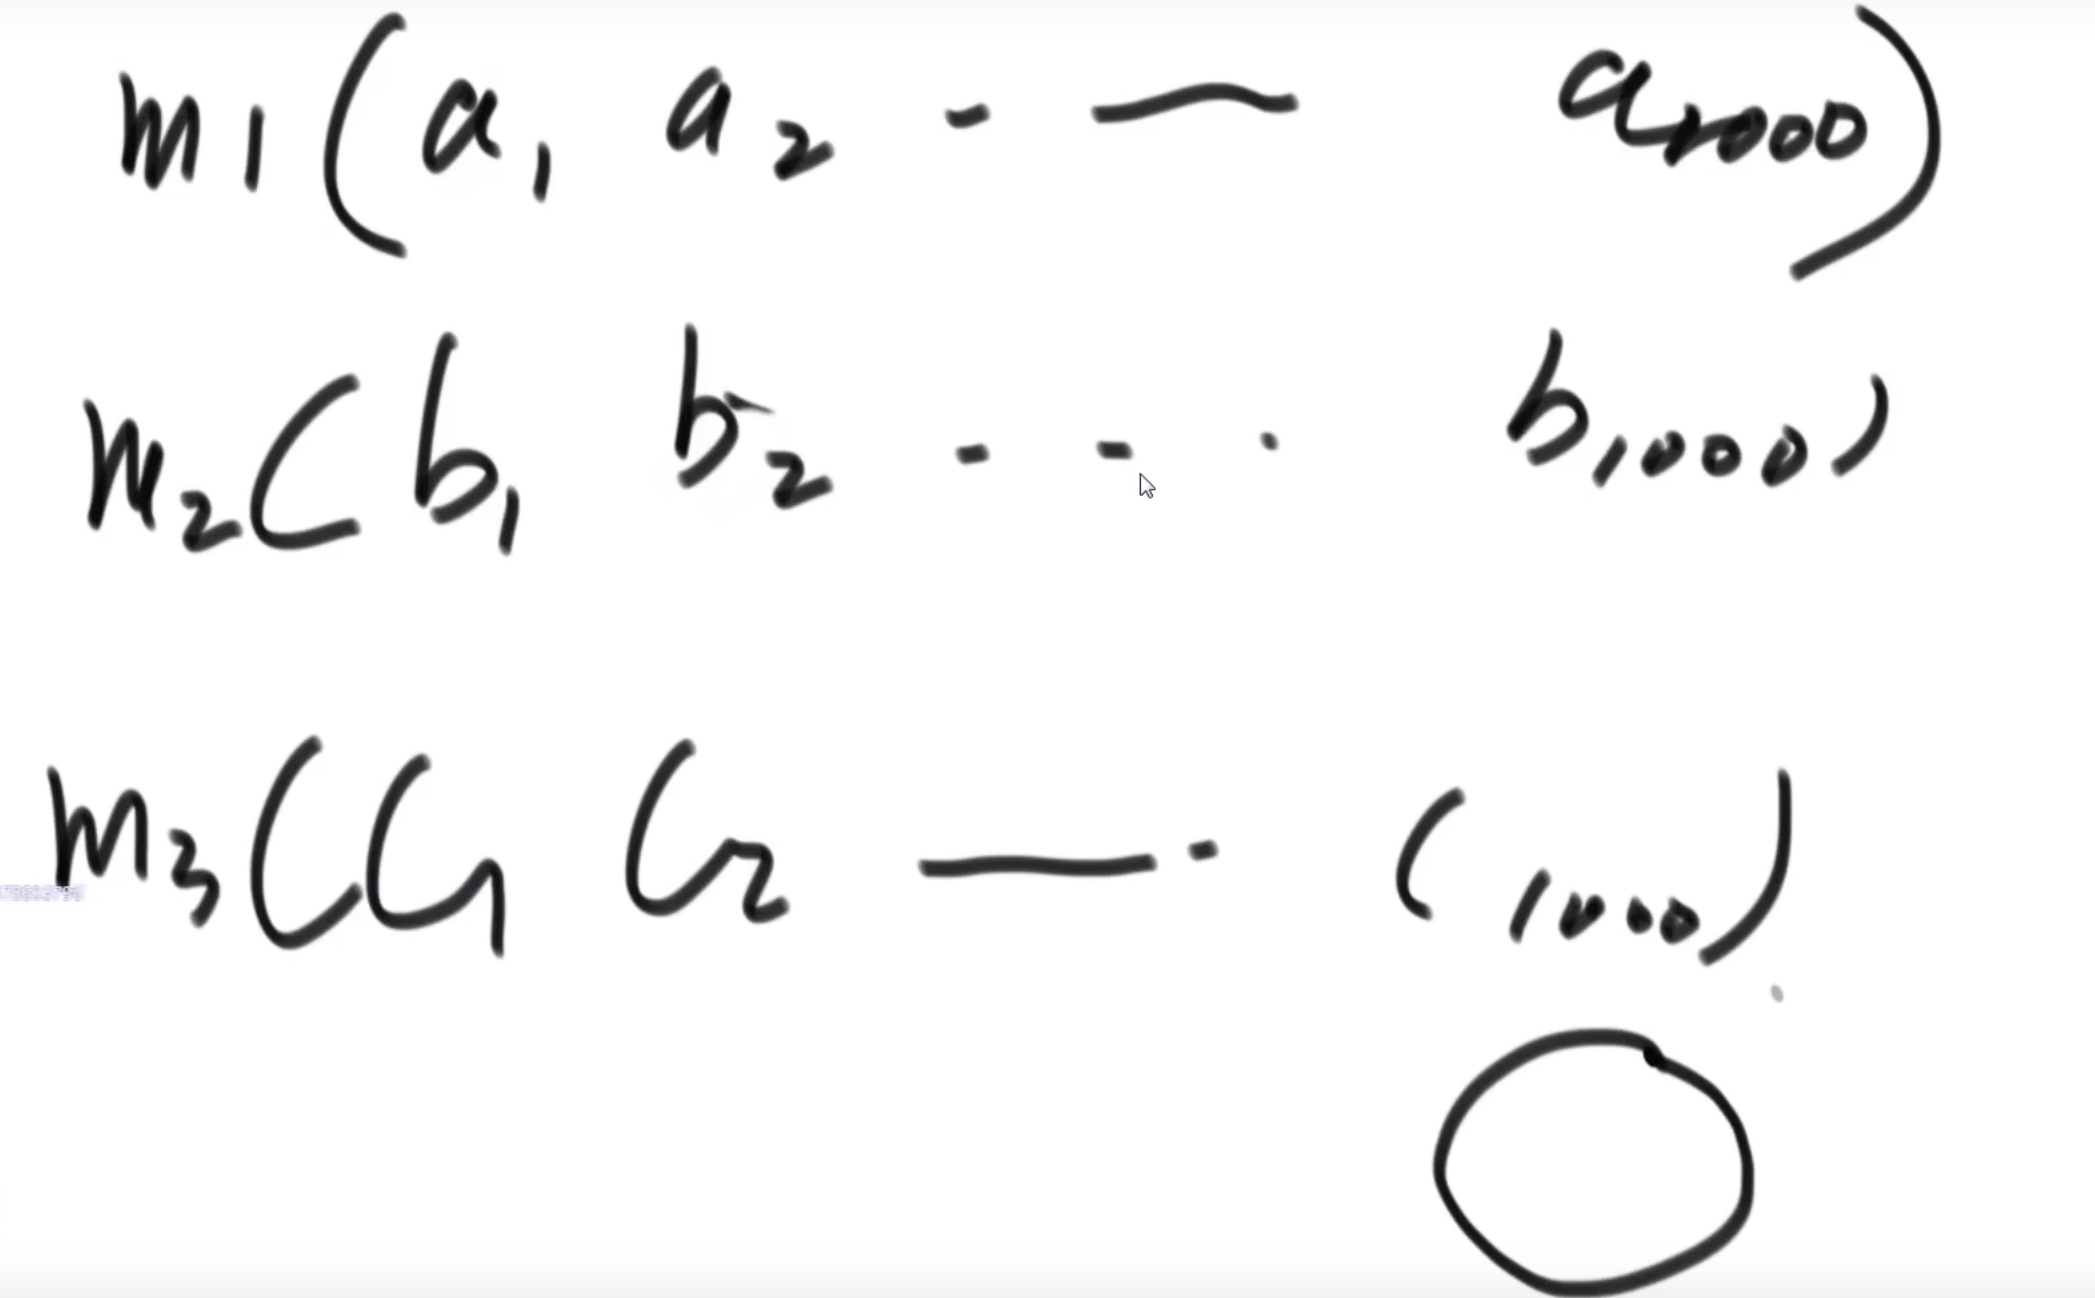 m1(a1 a2 - — a1000)
m2(b1 b2 - - · b1000)
m3(C1 C2 — - C1000)